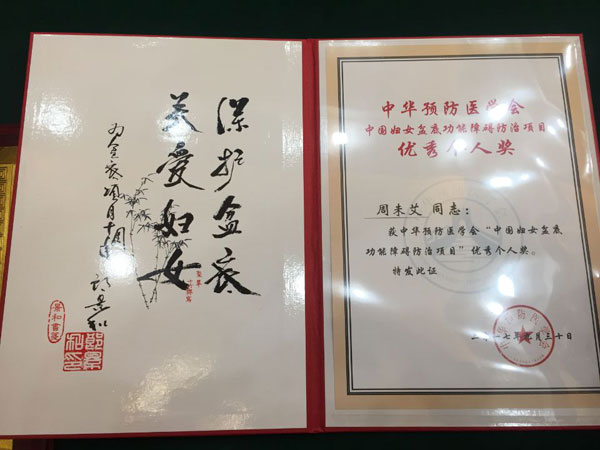 保护盆底
关爱妇女
为盆底项目十周年
郎景和
郎景和印
中华预防医学会
中国妇女盆底功能障碍防治项目
优秀个人奖
周朱艾 同志：
获中华预防医学会“中国妇女盆底
功能障碍防治项目”优秀个人奖。
特发此证
中华预防医学会
二〇一七年 月三十日